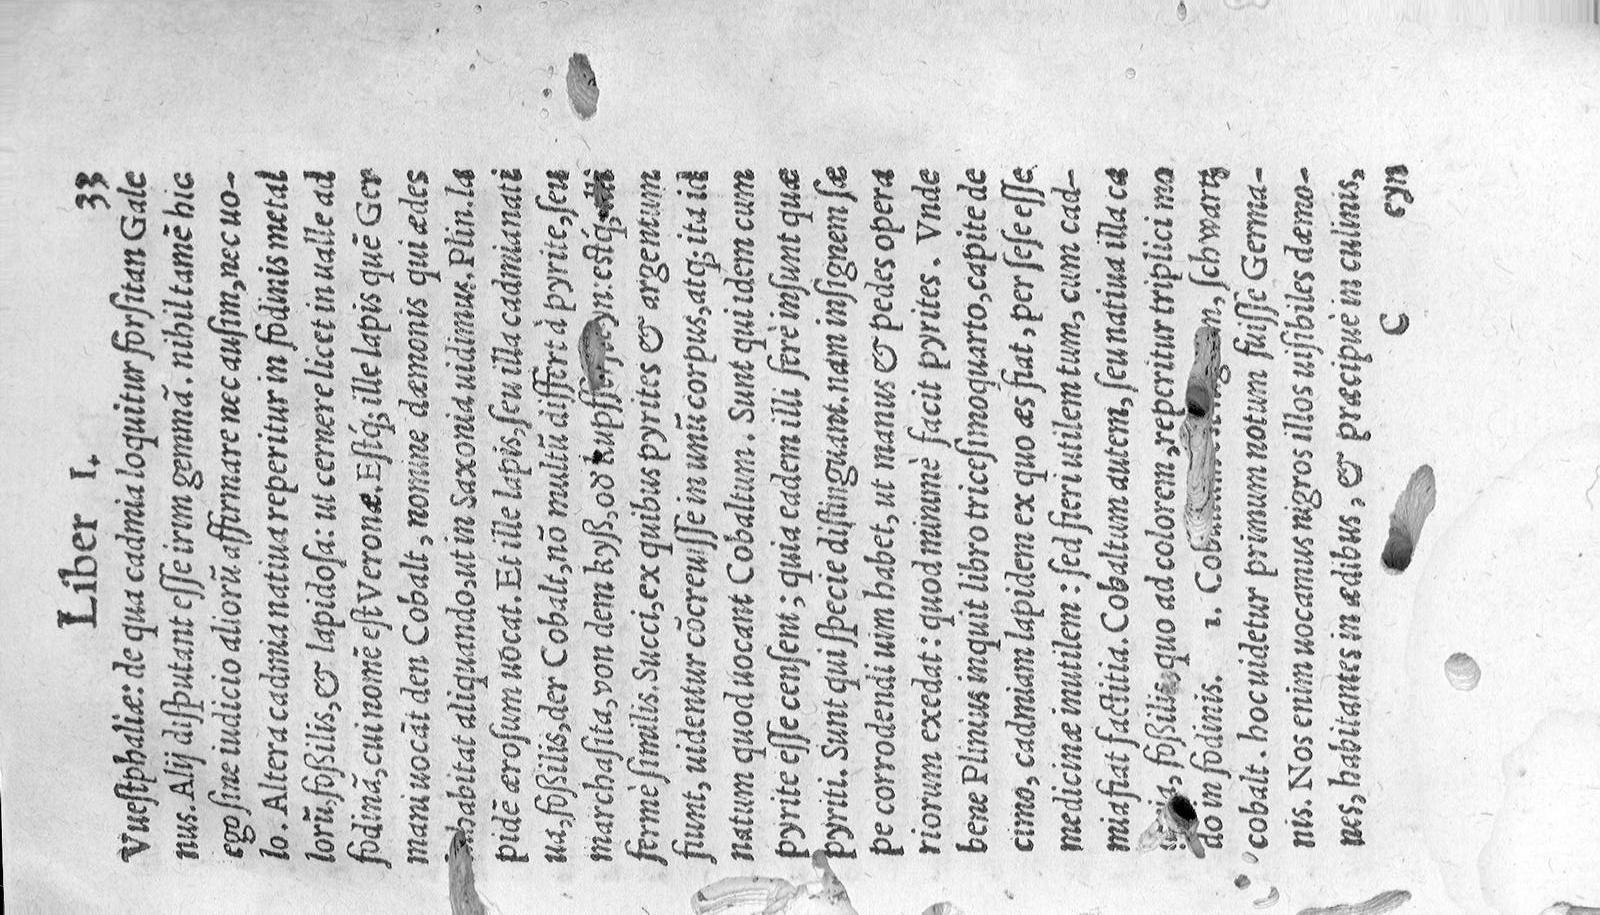 Liber I. 33
Vuestphaliæ: de qua cadmia loquitur forsitan Gale
nus. Alij disputant esse irim gemmã. nihil tamẽ hic
ego sine iudicio aliorũ affirmare nec ausim, nec uo-
lo. Altera cadmia natiua reperitur in fodinis metal
lorũ, foßilis, & lapidosa: ut cernere licet in ualle ad
fodinã, cui nomẽ est Veronæ. Estq́; ille lapis quẽ Ger
mani uocãt den Cobalt, nomine dæmonis qui ædes
inhabitat aliquando, ut in Saxonia uidimus. Plin. la
pidẽ ærosum uocat. Et ille lapis, seu illa cadmia nati
ua, foßilis, der Cobalt, nõ multũ differt à pyrite, seu
marchasita, von dem kyß, od kupffer estq́;
fermè similis. Succi, ex quibus pyrites & argentum
fiunt, uidentur cõcreuisse in unũ corpus, atq; ita id
natum quod uocant Cobaltum. Sunt qui idem cum
pyrite esse censent; quia eadem illi ferè insunt quæ
pyriti. Sunt qui specie distinguant. nam insignem sæ
pe corrodendi uim habet, ut manus & pedes opera
riorum exedat: quod minimè facit pyrites. Vnde
bene Plinius inquit libro tricesimoquarto, capite de
cimo, cadmiam lapidem ex quo æs fiat, per sese esse
medicinæ inutilem: sed fieri utilem tum, cum cad-
mia fiat factitia. Cobaltum autem, seu natiua illa ca
foßilis, quo ad colorem, reperitur triplici mo
do in fodinis. 1. schwartz
cobalt. hoc uidetur primum notum fuisse Germa-
nis. Nos enim uocamus nigros illos uisibiles dæmo-
nes, habitantes in ædibus, & præcipuè in culinis,
C cyn